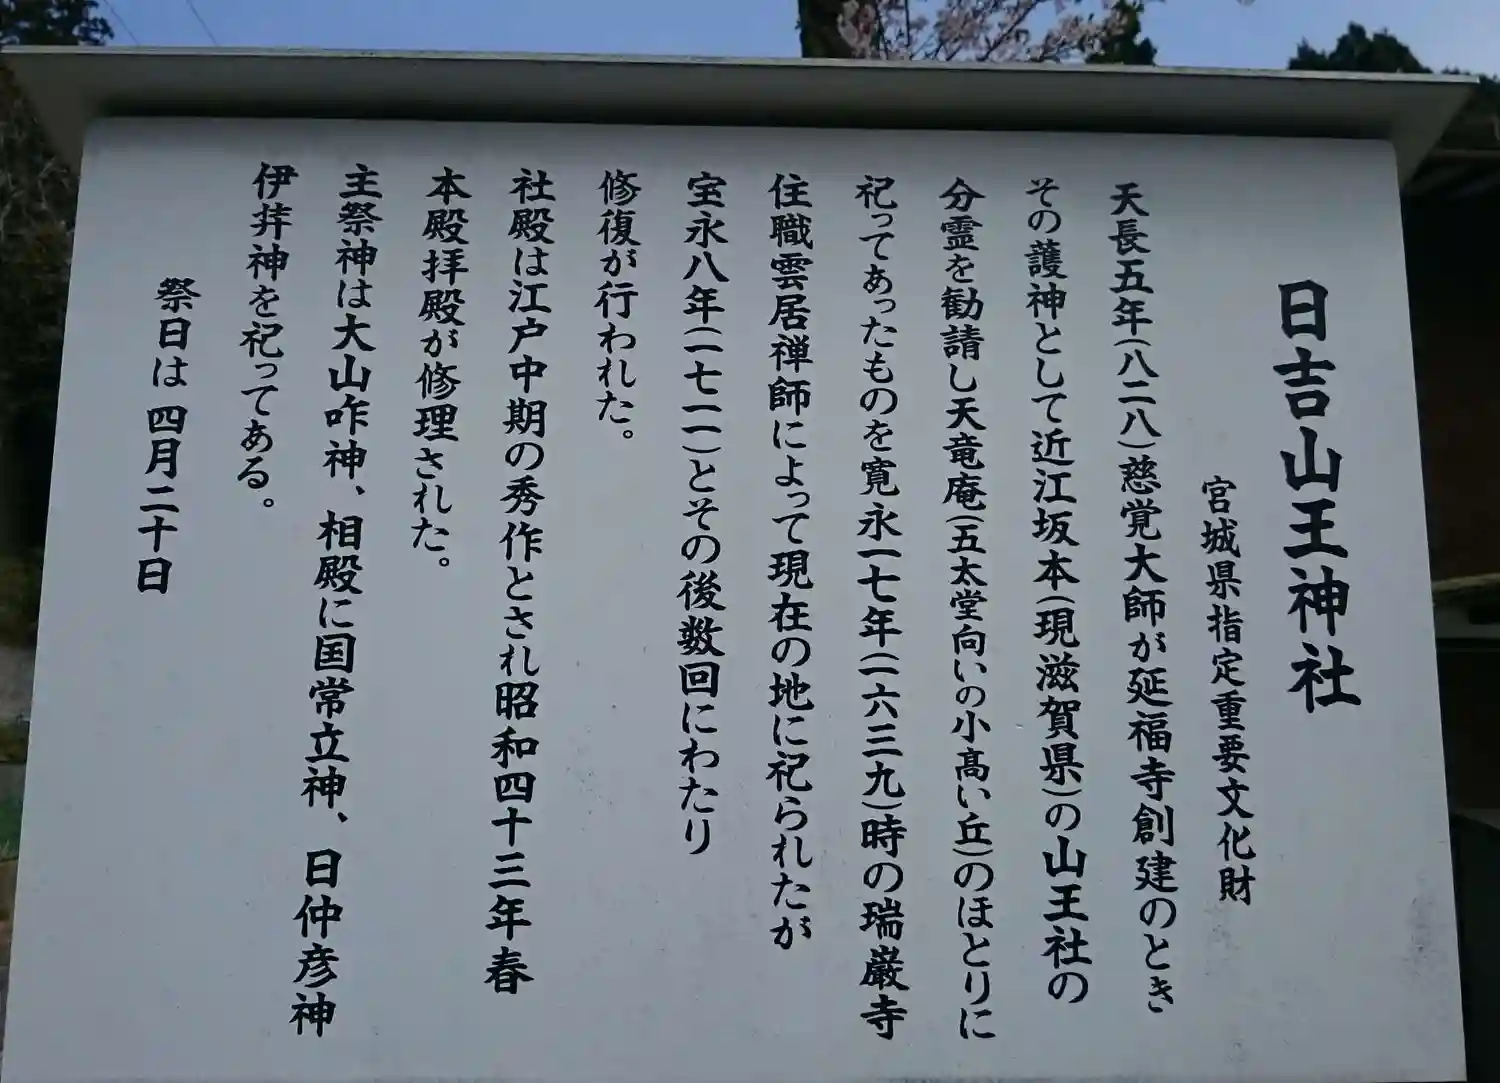 日吉山王神社
宮城県指定重要文化財
天長五年(八二八)慈覚大師が延福寺創建のとき
その護神として近江坂本(現滋賀県)の山王社の
分霊を勧請し天竜庵(五太堂向いの小高い丘)のほとりに
祀ってあったものを寛永一七年(一六三九)時の瑞巌寺
住職雲居禅師によって現在の地に祀られたが
宝永八年(一七一一)とその後数回にわたり
修復が行われた。
社殿は江戸中期の秀作とされ昭和四十三年春
本殿拝殿が修理された。
主祭神は大山咋神、相殿に国常立神、日仲彦神
伊弉神を祀ってある。
祭日は四月二十日